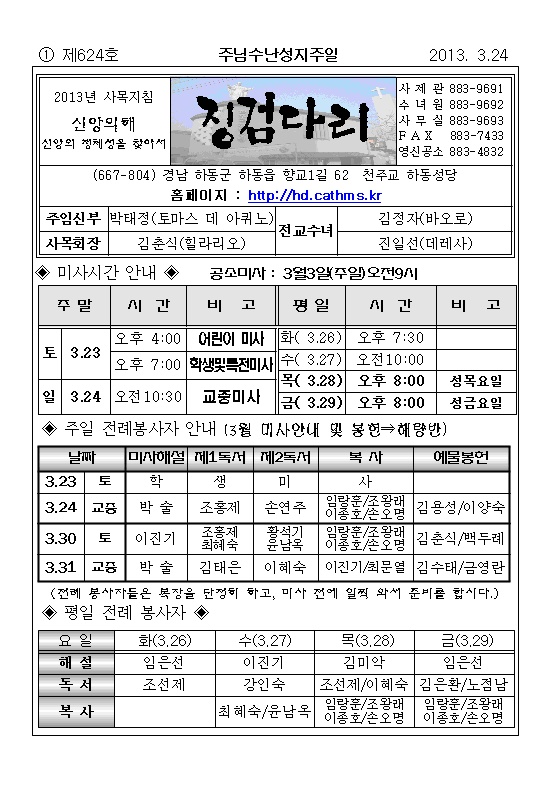 ① 제624호 주님수난성지주일 2013. 3.24
2013년 사목지침
신앙의해
신앙의 정체성을 찾아서
징검다리
사 제 관 883-9691
수 녀 원 883-9692
사 무 실 883-9693
F A X 883-7433
영신공소 883-4832
(667-804) 경남 하동군 하동읍 향교1길 62 천주교 하동성당
홈페이지 : http://hd.cathms.kr
주임신부 박태정(토마스 데 아퀴노) 전교수녀 김정자(바오로)
사목회장 김춘식(힐라리오) 진일선(데레사)
◈ 미사시간 안내 ◈ 공소미사 : 3월3일(주일)오전9시
주 말 시 간 비 고 평 일 시 간 비 고
토 3.23 오후 4:00 어린이 미사 화( 3.26) 오후 7:30
오후 7:00 학생및특전미사 수( 3.27) 오전10:00
일 3.24 오전10:30 교중미사 목( 3.28) 오후 8:00 성목요일
금( 3.29) 오후 8:00 성금요일
◈ 주일 전례봉사자 안내 (3월 미사안내 및 봉헌⇒해량반)
날짜 미사해설 제1독서 제2독서 복 사 예물봉헌
3.23 토 학 생 미 사
3.24 교중 박 술 조홍제 손연주 임랑훈/조왕래 이종호/손오명 김용성/이양숙
3.30 토 이진기 조홍제 최혜숙 황석기 윤남옥 임랑훈/조왕래 이종호/손오명 김춘식/백두례
3.31 교중 박 술 김태은 이혜숙 이진기/최문열 김수태/금영란
(전례 봉사자들은 복장을 단정히 하고, 미사 전에 일찍 와서 준비를 합시다.)
◈ 평일 전례 봉사자 ◈
요 일 화(3,26) 수(3,27) 목(3,28) 금(3,29)
해 설 임은선 이진기 김미악 임은선
독 서 조선제 강인숙 조선제/이혜숙 김은환/노점남
복 사 최혜숙/윤남옥 임랑훈/조왕래 이종호/손오명 임랑훈/조왕래 이종호/손오명